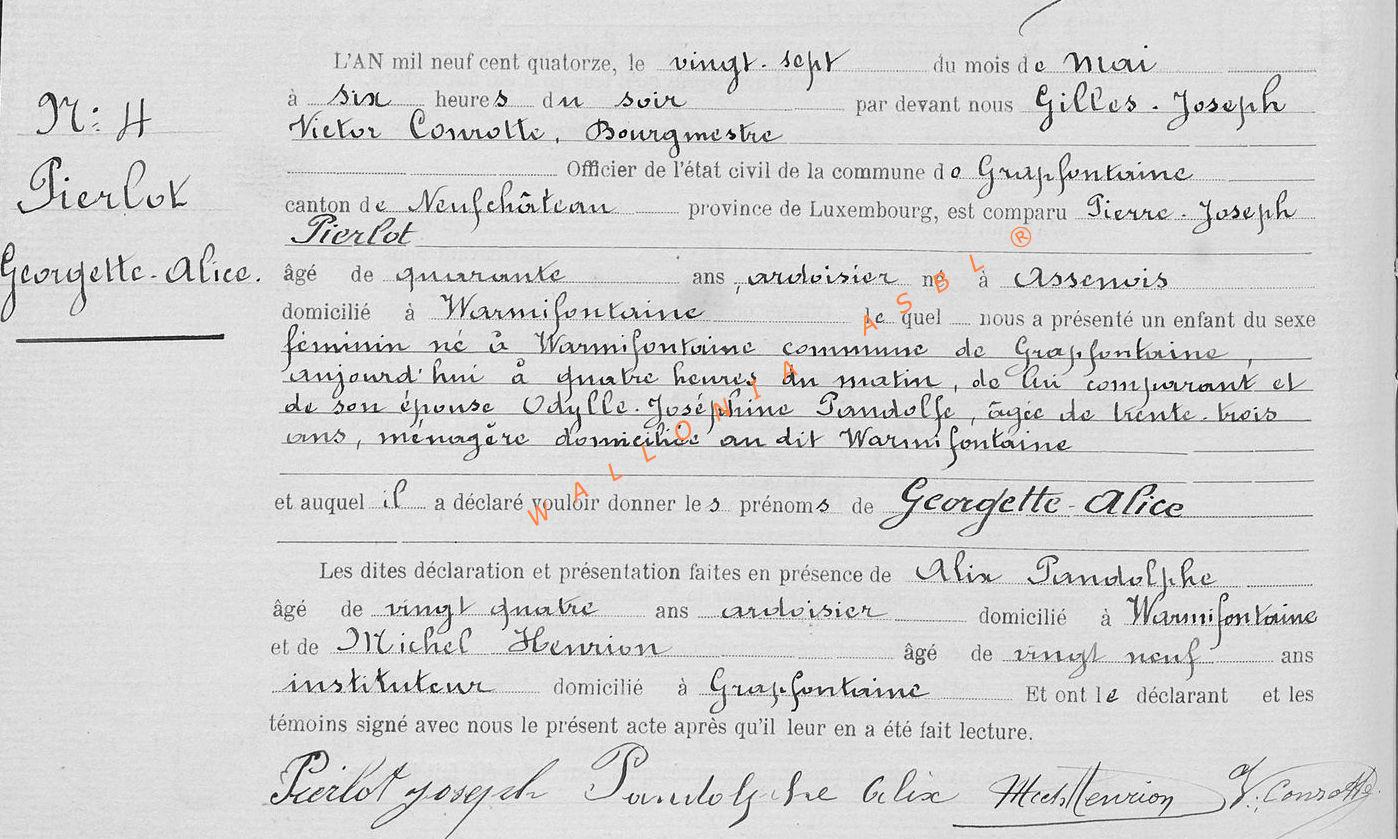 N°: 4
Pierlot
Georgette-Alice.
L'AN mil neuf cent quatorze, le vingt-sept du mois de Mai
à six heures du soir par devant nous Gilles-Joseph
Victor Conrotte, Bourgmestre
Officier de l'état civil de la commune de Grapfontaine
canton de Neufchâteau province de Luxembourg, est comparu Pierre-Joseph
Pierlot
âgé de quarante ans, ardoisier né à Assenois
domicilié à Warmifontaine le quel nous a présenté un enfant du sexe
féminin né à Warmifontaine commune de Grapfontaine,
aujourd'hui à quatre heures du matin, de lui comparant et
de son épouse Odylle-Joséphine Pandolfe, âgée de trente-trois
ans, ménagère domiciliée au dit Warmifontaine
et auquel il a déclaré vouloir donner les prénoms de Georgette-Alice
Les dites déclaration et présentation faites en présence de Alix Pandolphe
âgé de vingt quatre ans ardoisier domicilié à Warmifontaine
et de Michel Henrion âgé de vingt neuf ans
instituteur domicilié à Grapfontaine Et ont le déclarant et les
témoins signé avec nous le présent acte après qu'il leur en a été fait lecture.
Pierlot Joseph Pandolphe Alix Mich Henrion V. Conrotte
WALLONIA ASBL ®